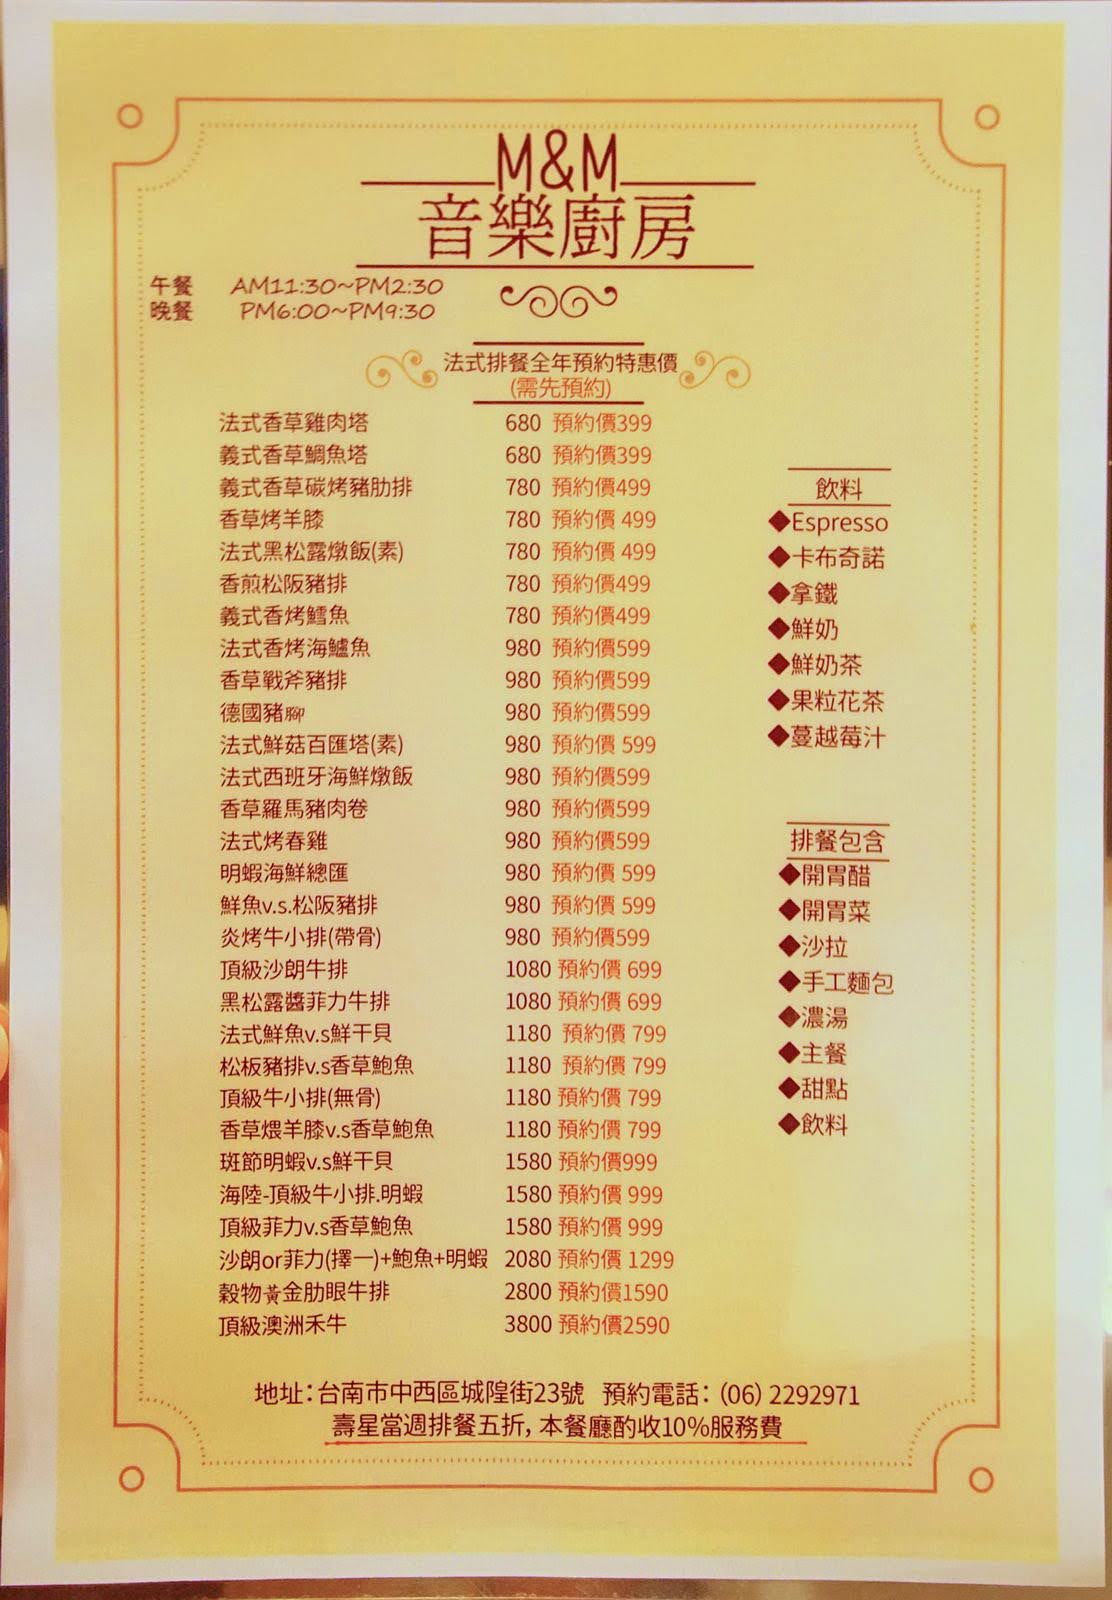 M&M
音樂廚房
午餐 AM11:30~PM2:30
晚餐 PM6:00~PM9:30
法式排餐全年預約特惠價
(需先預約)
法式香草雞肉塔 680 預約價399
義式香草鯛魚塔 680 預約價399
義式香草碳烤豬肋排 780 預約價499
香草烤羊膝 780 預約價 499
法式黑松露燉飯(素) 780 預約價 499
香煎松阪豬排 780 預約價499
義式香烤鱈魚 780 預約價499
法式香烤海鱸魚 980 預約價599
香草戰斧豬排 980 預約價599
德國豬腳 980 預約價599
法式鮮菇百匯塔(素) 980 預約價 599
法式西班牙海鮮燉飯 980 預約價599
香草羅馬豬肉卷 980 預約價599
法式烤春雞 980 預約價599
明蝦海鮮總匯 980 預約價 599
鮮魚v.s.松阪豬排 980 預約價 599
炎烤牛小排(帶骨) 980 預約價599
頂級沙朗牛排 1080 預約價 699
黑松露醬菲力牛排 1080 預約價 699
法式鮮魚v.s鮮干貝 1180 預約價 799
松板豬排v.s香草鮑魚 1180 預約價 799
頂級牛小排(無骨) 1180 預約價 799
香草煨羊膝v.s香草鮑魚 1180 預約價 799
斑節明蝦v.s鮮干貝 1580 預約價999
海陸-頂級牛小排.明蝦 1580 預約價 999
頂級菲力v.s香草鮑魚 1580 預約價 999
沙朗or菲力(擇一)+鮑魚+明蝦 2080 預約價 1299
穀物黃金肋眼牛排 2800 預約價1590
頂級澳洲禾牛 3800 預約價2590
飲料
◆Espresso
◆卡布奇諾
◆拿鐵
◆鮮奶
◆鮮奶茶
◆果粒花茶
◆蔓越莓汁
排餐包含
◆開胃醋
◆開胃菜
◆沙拉
◆手工麵包
◆濃湯
◆主餐
◆甜點
◆飲料
地址：台南市中西區城隍街23號 預約電話：(06) 2292971
壽星當週排餐五折, 本餐廳酌收10%服務費